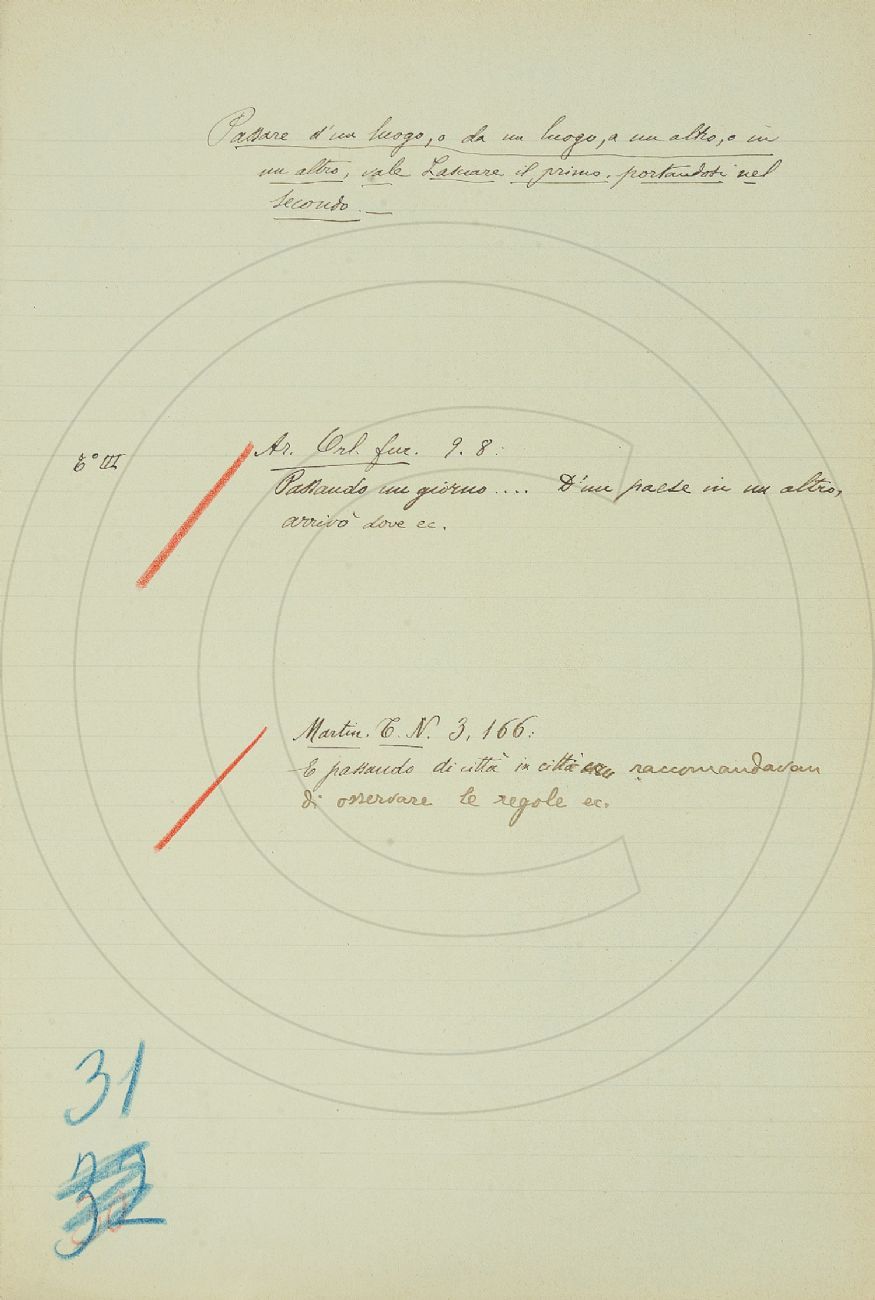 Passare d'un luogo, o da un luogo, a un altro, o in
un altro, vale Lasciare il primo, portandosi nel
secondo. —
T.° III
Ar. Orl. fur. 9. 8:
Passando un giorno .... D'un paese in un altro,
arrivò dove ec.
Martin. T. N. 3, 166:
E passando di città in città raccomandavan
di osservare le regole ec.
31
32